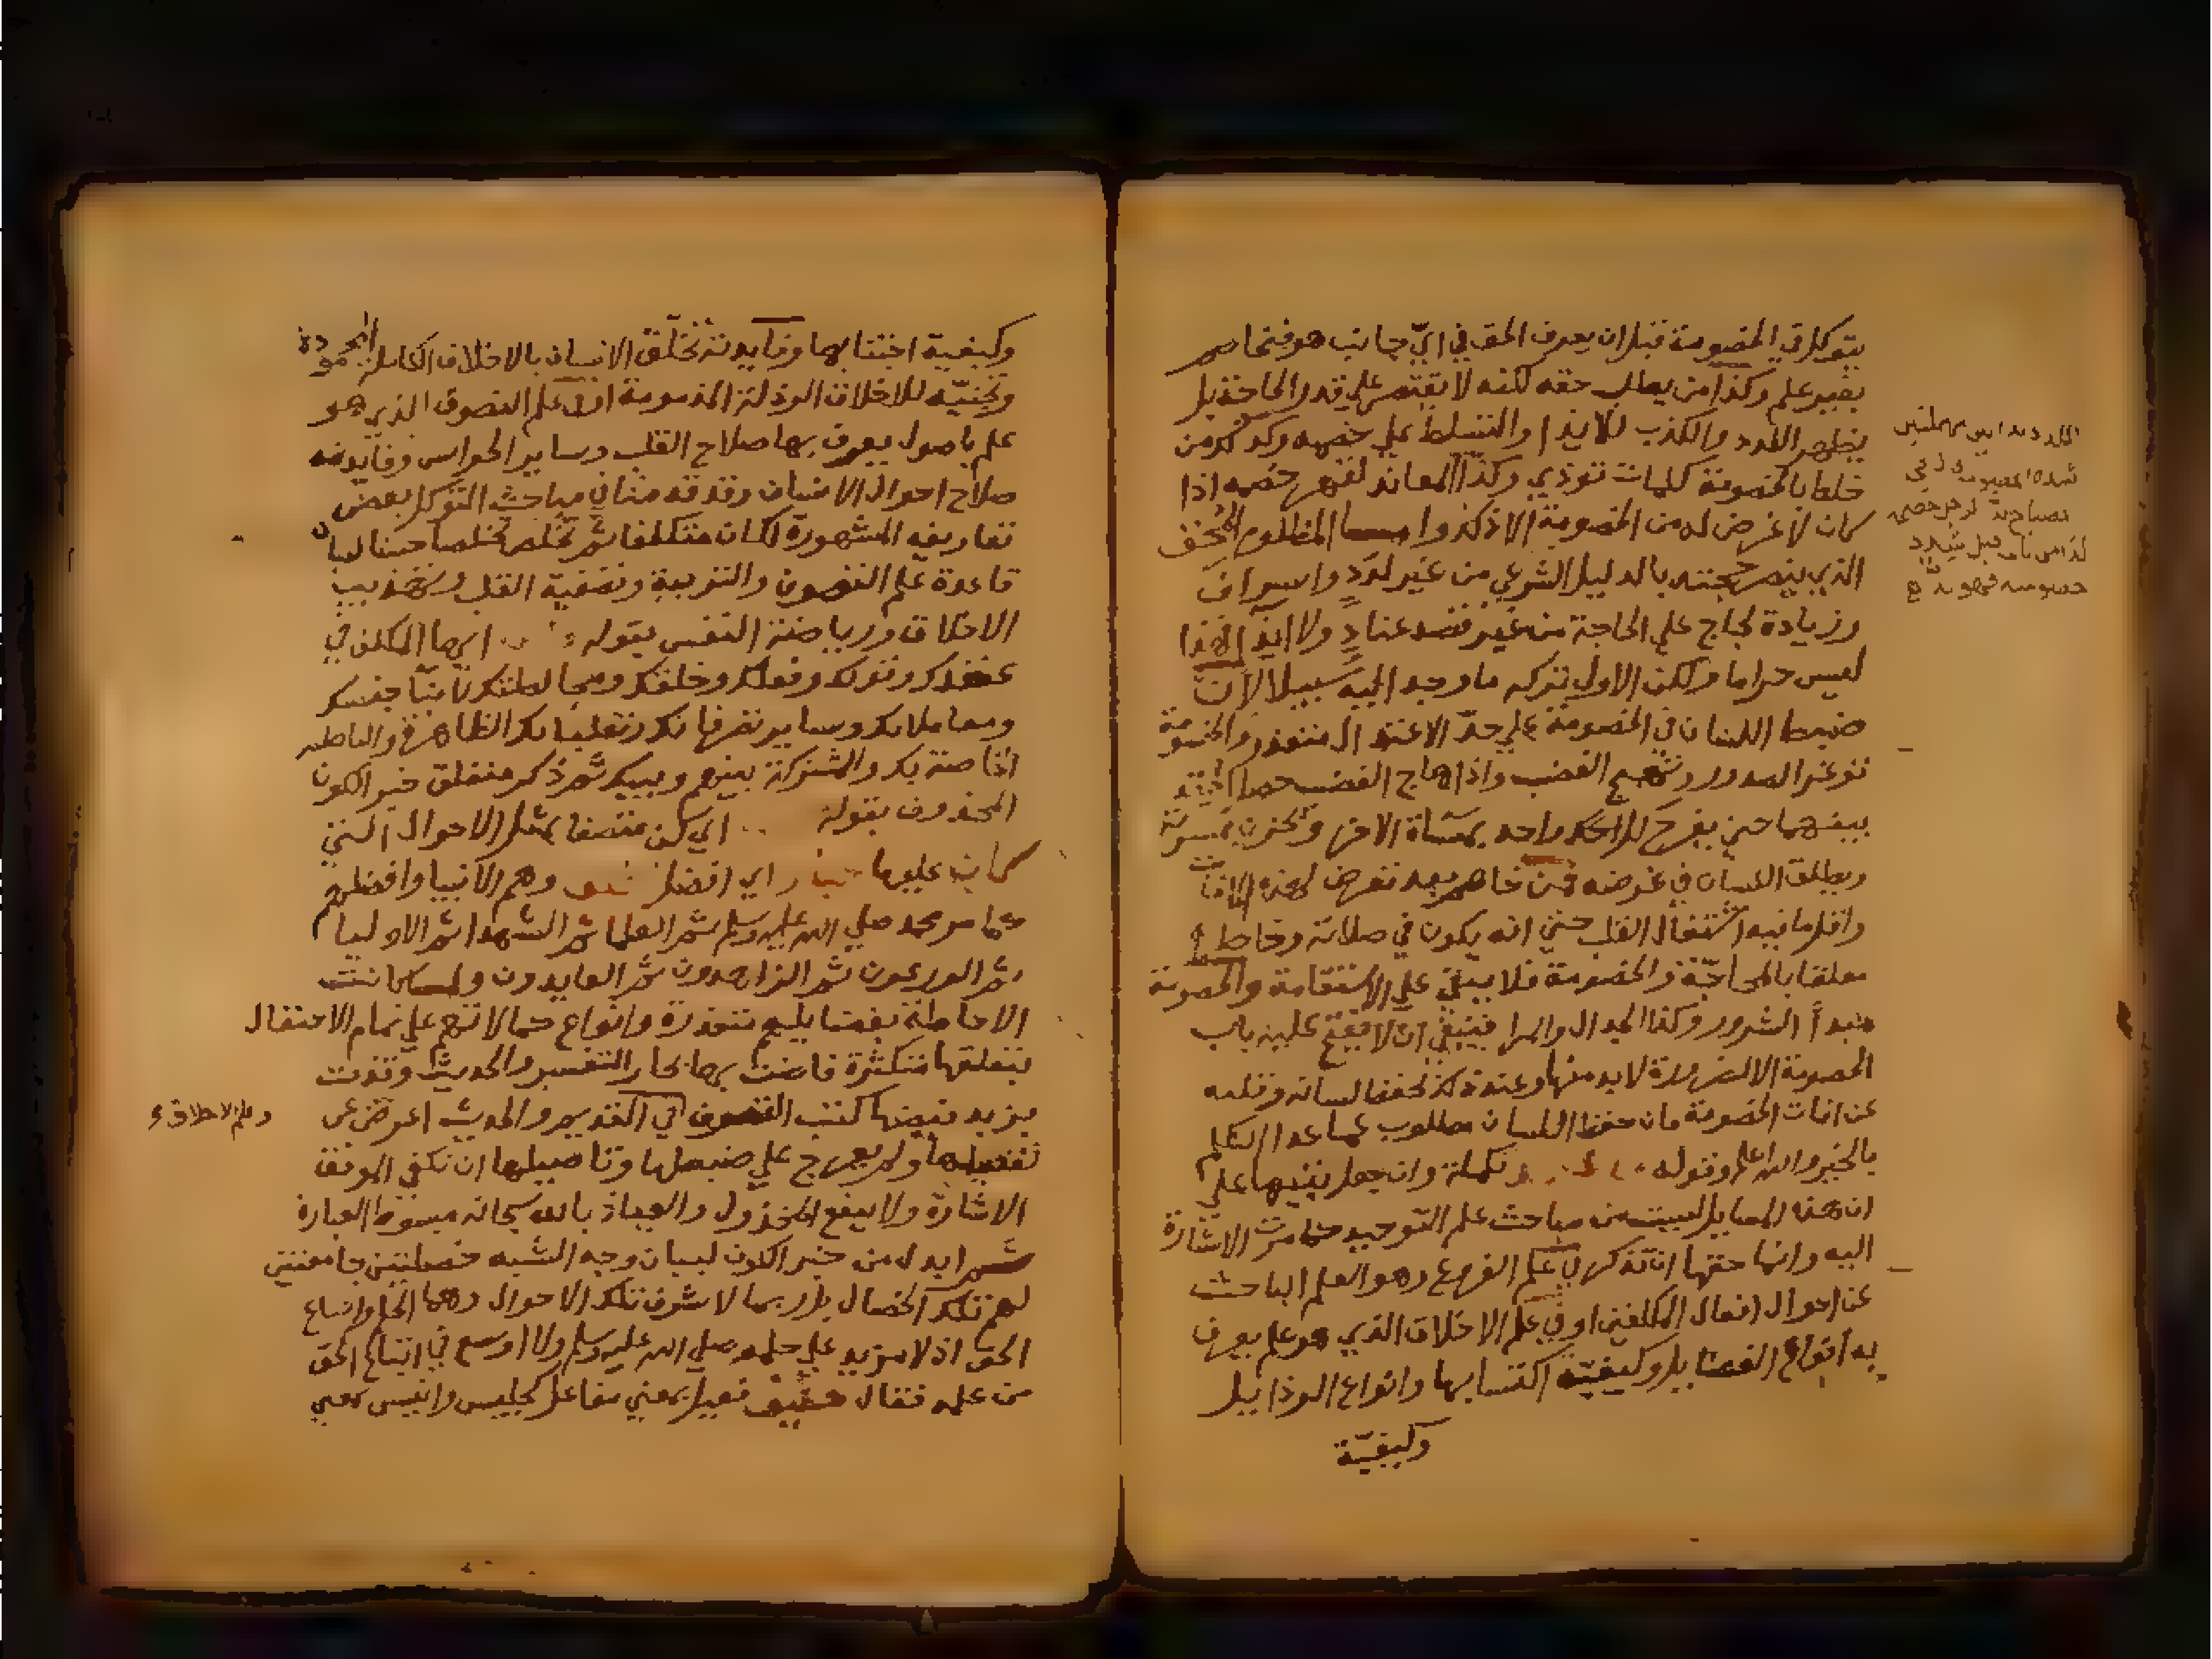 يتوكل في الخصومة قبل ان يعرف الحق في ايّ جانب هو فيخاصم
بغير علم وكذا من يطلب حقه لكنه لا يقتصر على قدر الحاجة بل
يظهر اللدد والكذب للايذا والتسلط على خصمه وكذلك من
خلط بالخصومة كلمات توذي وكذا المعاند لقهر خصمه اذا
كان لا غرض له من الخصومة الا ذلك واما المظلوم المحق
الذي ينصر حجته بالدليل الشرعي من غير لددٍ واسراف
وزيادة لجاج على الحاجة من غير قصد عنادٍ ولا ايذا فهذا
ليس حراما ولكن الاولى تركه ما وجد اليه سبيلا لان
ضبط اللسان في الخصومة على حدّ الاعتدال متعذر والخصومة
توغر الصدور وتهيج الغضب واذا هاج الغضب حصل الحقد
بينهما حتى يفرح كل واحد بمساة الاخر ويحزن بمسرته
ويطلق اللسان في عرضه فمن خاصم فقد تعرض لهذه الافات
واقل ما فيه اشتغال القلب حتى انه يكون في صلاته وخاطره
معلقا بالمحاجّة والخصومة فلا يبقى على الاستقامة والخصومة
مبدأ الشرور وكذا الجدال والمرا فينبغي ان لا يفتح عليه باب
الخصومة الا لضرورة لا بد منها وعند ذلك يحفظ لسانه وقلبه
عن افات الخصومة فان حفظ اللسان مطلوب فيما عدا التكلم
بالخير والله اعلم وقوله تكملة وان جعل تنبيها على
ان هذه المسايل ليست من مباحث علم التوحيد كما مرت الاشارة
اليه وانما حقها ان تذكر في علم الفروع وهو العلم الباحث
عن احوال افعال المكلفين او في علم الاخلاق الذي هو علم يعرف
به أنواع الفضايل وكيفيّة اكتسابها وانواع الرذايل
وكيفيّة
اللدد
شدة الخصومة
خصومته
وكيفية اجتنابها وفايدته تخلّق الانسان بالاخلاق الكاملة المحمودة
وتجنّبه للاخلاق الرذلة المذمومة او في علم التصوف الذي هو
علم باصول يعرف بها صلاح القلب وساير الحواس وفايدته
صلاح احوال الانسان وقد قدمنا في مباحث التوكل بعض
تعاريفه المشهورة لكان متكلفا ثم تخلّص تخلصا حسنا لبيان
قاعدة علم التصوف والتربية وتصفية القلب وتهذيب
الاخلاق ورياضة النفس بقوله ايها المكلف في
عقدك وقولك وفعلك وخلقك
ومعاملاتك وساير تصرفاتك وتقلباتك الظاهرة والباطنه
الخاصة بك والمشتركة بينهم وبينك ثم ذكر متعلق خبر الكون
المحذوف بقوله اي كن متصفا بمثل الاحوال التي
كان عليها خيار اي افضل وهم الانبيا وافضلهم
كما مر محمد صلى الله عليه وسلم ثم العلما ثم الشهدا ثم الاوليا
ثم الورعون ثم الزاهدون ثم العابدون ولما كانت
الاحاطة
بتعلقها متكثرة فاضت بها بحار التفسير والحديث وقذفت
بزبد فيضها كتب التصوف في القديم والحديث اعرض عن
تفصيلها ولم يعرج على ضبطها وتاصيلها اذ تكفي الموفق
الاشارة ولا ينفع المخذول والعياذ بالله سبحانه مبسوط العبارة
ثم ابدل من خبر الكون لبيان وجه الشبه خصلتين جامعتين
لهم تلك الخصال بل ربما لا شرف تلك الاحوال وهما الحلم واتباع
الحق اذ لا مزيد على حلمه صلى الله عليه وسلم ولا اوسع في اتباع الحق
من علمه فقال فعيل بمعنى مفاعل كجليس وانيس بمعنى
وعلم الاخلاق